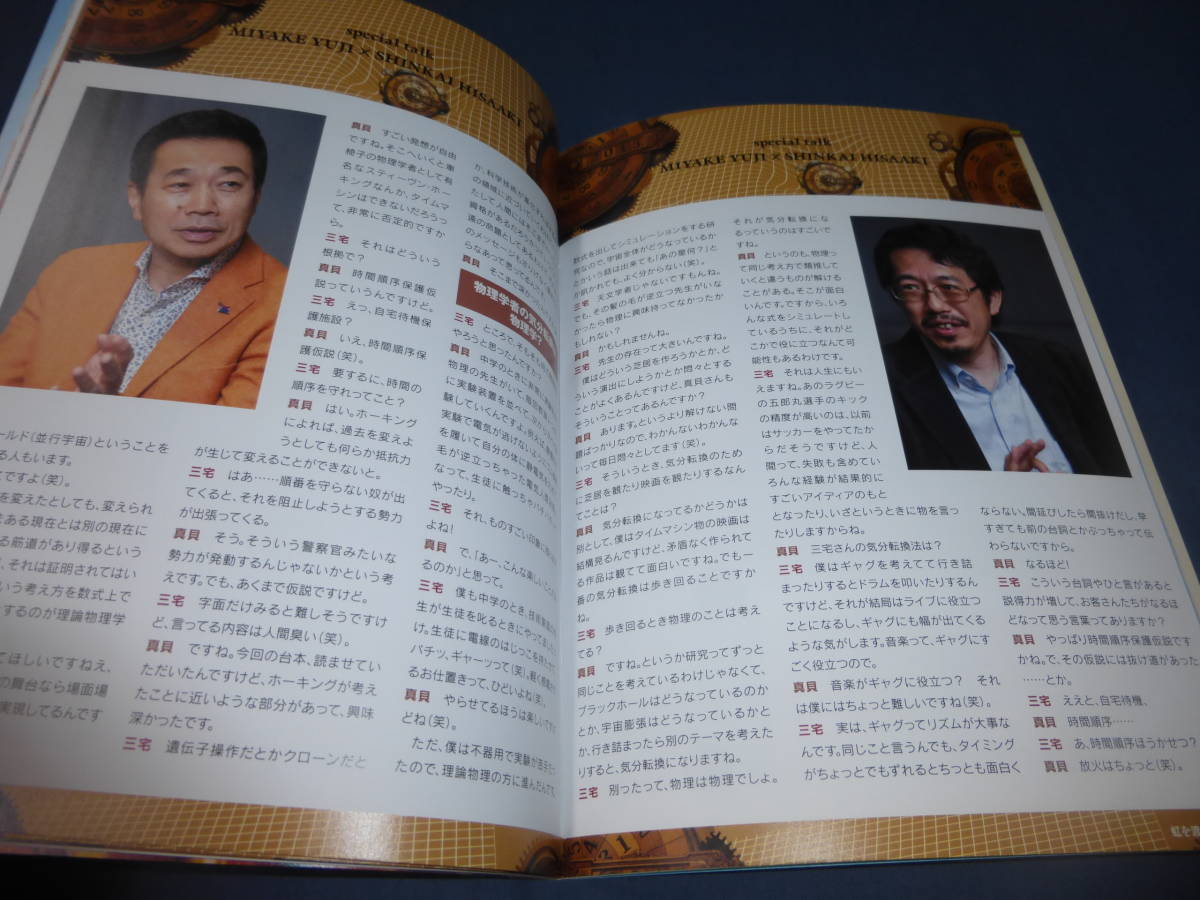 special talk
MIYAKE YUJI × SHINKAI HISAAKI
真貝 すごい発想が自由
ですね。そこへいくと車
椅子の物理学者として有
名なスティーヴン・ホー
キングなんか、タイムマ
シンはできないだろうっ
て、非常に否定的ですか
ら。
三宅 それはどういう
根拠で?
真貝 時間順序保護仮
説っていうんですけど。
三宅 えっ、自宅待機保
護施設?
真貝 いえ、時間順序保
護仮説(笑)。
三宅 要するに、時間の
順序を守れってこと?
真貝 はい。ホーキング
によれば、過去を変えよ
うとしても何らか抵抗力
ールド(並行宇宙)ということを
る人もいます。
てですよ(笑)。
を変えたとしても、変えられ
である現在とは別の現在に
る筋道があり得るという
、それは証明されてはい
いう考え方を数式上で
するのが理論物理学
てほしいですねえ、
の舞台なら場面場
実現してるんです
が生じて変えることができないと。
三宅 はあ……順番を守らない奴が出
てくると、それを阻止しようとする勢力
が出張ってくる。
真貝 そう。そういう警察官みたいな
勢力が発動するんじゃないかという考
えです。でも、あくまで仮説ですけど。
三宅 字面だけみると難しそうですけ
ど、言ってる内容は人間臭い(笑)。
真貝 ですね。今回の台本、読ませてい
ただいたんですけど、ホーキングが考え
たことに近いような部分があって、興味
深かったです。
三宅 遺伝子操作だとかクローンだと
物理学者の気分転
物理学?
三宅 ところで、そもそも
やろうと思ったんですか
真貝 中学のときに
物理の先生がいて、
に実験装置を並べて、
験していくんですよ。
実験で電気が逃げないように
を履いて自分の体に静電気
毛が逆立っちゃった
なって、生徒に触っちゃバチッ
やったり。
三宅 それ、ものすごい印象に
よね!
真貝 で、「あー、こんな楽しいこと
るのか」と思って。
三宅 僕も中学のとき、技術家庭の
生が生徒を叱るときにやってました
け。生徒に電線のはじっこを持たせて
バチッ、ギャーッって(笑)。軽く感電
るお仕置きって、ひどいよね(笑)。
真貝 やらせてるほうは楽しいですけ
どね(笑)。
ただ、僕は不器用で実験が苦手だっ
たので、理論物理の方に進んだんです。
special talk
MIYAKE YUJI × SHINKAI HISAAKI
数式を出してシミュレーションをする研
究なので、宇宙全体がどうなっているか
とかいう話は出来ても「あの星何?」と
か訊かれても、よく分からない(笑)。
三宅 天文学者じゃないですもんね。
でも、その髪の毛が逆立つ先生がいな
かったら物理に興味持ってなかったか
もしれない?
真貝 かもしれませんね。
三宅 先生の存在って大きいんですね。
僕はどういう芝居を作ろうかとか、ど
ういう演出にしようかとか悶々とする
ことがよくあるんですけど、真貝さんも
そういうことってあるんですか?
真貝 あります。というより解けない問
題ばっかりなので、わかんないわかんな
いって毎日悶々としてます(笑)。
三宅 そういうとき、気分転換のため
に芝居を観たり映画を観たりするなん
てことは?
真貝 気分転換になってるかどうかは
別として、僕はタイムマシン物の映画は
結構見るんですけど、矛盾なく作られて
る作品は観てて面白いですね。でも一
番の気分転換は歩き回ることですか
ね。
三宅 歩き回るとき物理のことは考え
てる?
真貝 ですね。というか研究ってずっと
同じことを考えているわけじゃなくて、
ブラックホールはどうなっているのか
とか、宇宙膨張はどうなっているかと
か、行き詰まったら別のテーマを考えた
りすると、気分転換になりますね。
三宅 別ったって、物理は物理でしょ。
それが気分転換にな
るっていうのはすごいで
すね。
真貝 というのも、物理っ
て同じ考え方で類推して
いくと違うものが解ける
ことがある。そこが面白
いんです。ですから、いろ
んな式をシミュレートし
ているうちに、それがど
こかで役に立つなんて可
能性もあるわけです。
三宅 それは人生にもい
えますね。あのラグビー
の五郎丸選手のキック
の精度が高いのは、以前
はサッカーをやってたか
らだそうですけど、人
間って、失敗も含めてい
ろんな経験が結果的に
すごいアイディアのもと
となったり、いざというときに物を言っ
たりしますからね。
真貝 三宅さんの気分転換法は?
三宅 僕はギャグを考えてて行き詰
まったりするとドラムを叩いたりするん
ですけど、それが結局はライブに役立つ
ことになるし、ギャグにも幅が出てくる
ような気がします。音楽って、ギャグにす
ごく役立つので。
真貝 音楽がギャグに役立つ? それ
は僕にはちょっと難しいですね(笑)。
三宅 実は、ギャグってリズムが大事な
んです。同じこと言うんでも、タイミング
がちょっとでもずれるとちっとも面白く
ならない。間延びしたら間抜けだし、早
すぎても前の台詞とかぶっちゃって伝
わらないですから。
真貝 なるほど!
三宅 こういう台詞やひと言があると
説得力が増して、お客さんたちがなるほ
どなって思う言葉ってありますか?
真貝 やっぱり時間順序保護仮説です
かね。で、その仮説には抜け道があった
……とか。
三宅 ええと、自宅待機、
真貝 時間順序……
三宅 あ、時間順序ほうかせつ?
真貝 放火はちょっと(笑)。
虹を